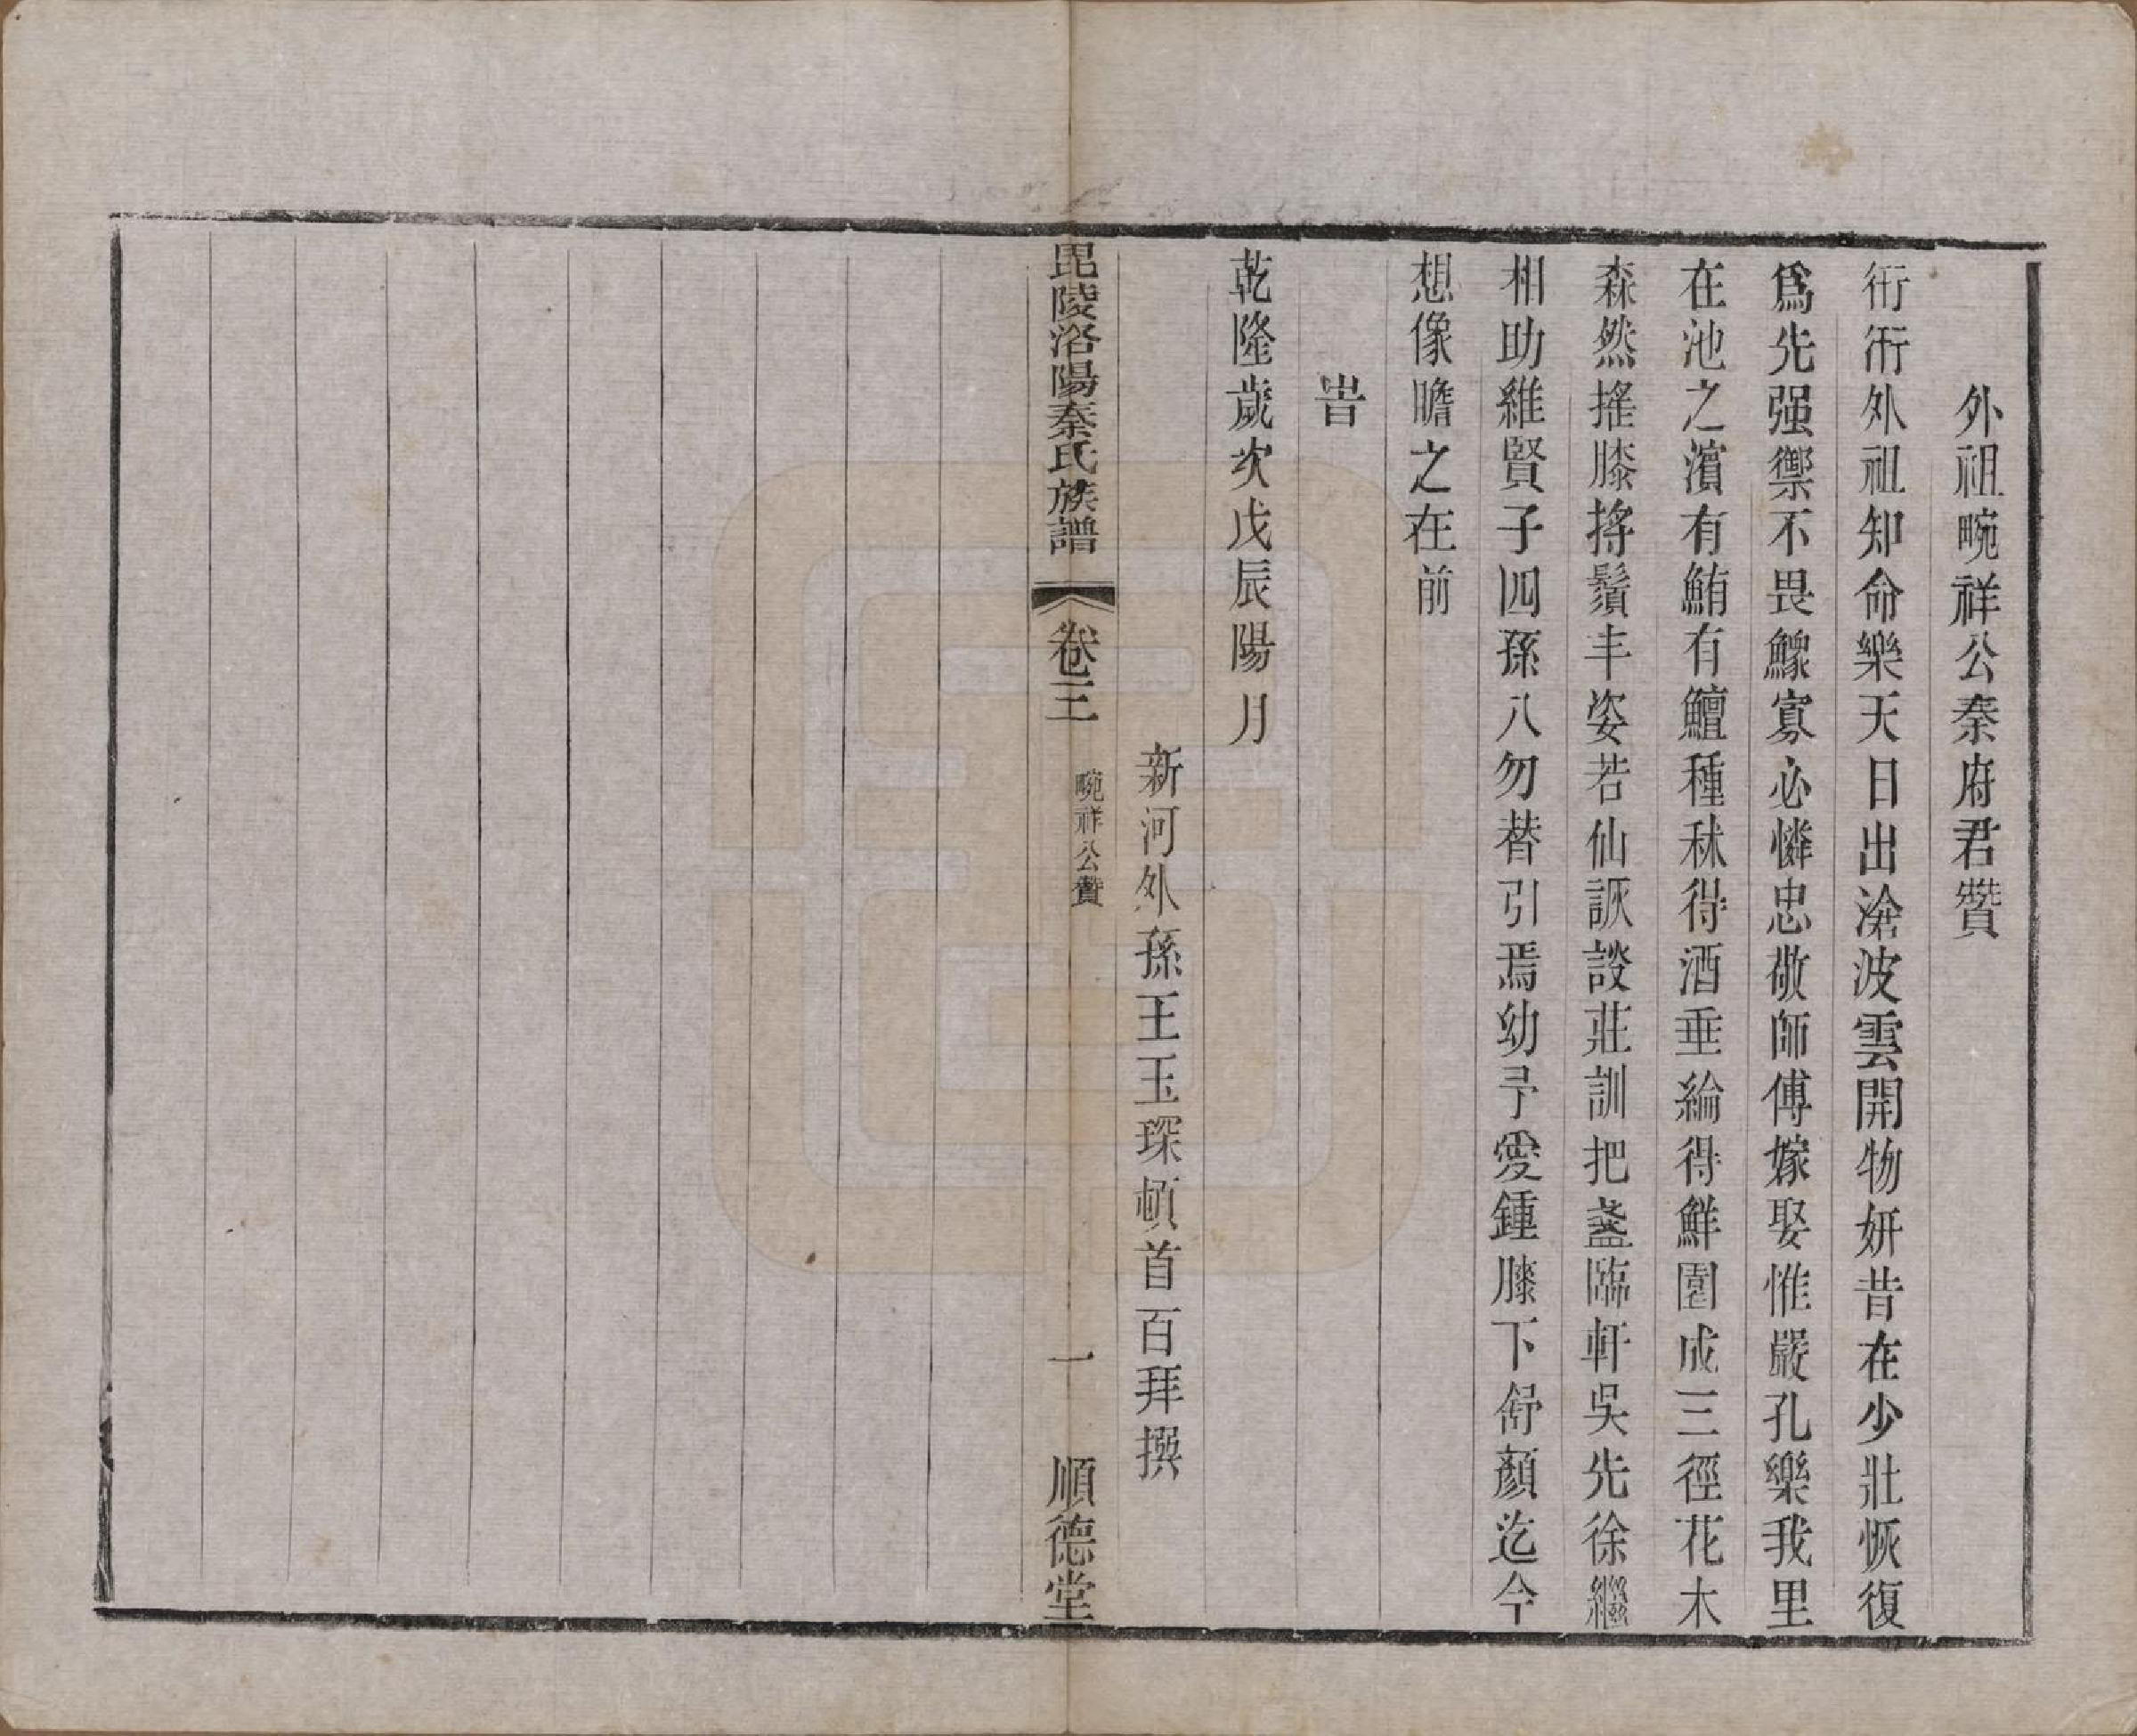 外祖畹祥公秦府君贊
衎衎外祖知命樂天日出滄波雲開物妍昔在少壯恢復
爲先强禦不畏鰥寡必憐忠敬師傅嫁娶惟嚴孔樂我里
在池之濱有鮪有鱣種秫得酒垂綸得鮮園成三徑花木
森然搖膝捋鬚丰姿若仙詼談莊訓把盞臨軒吳先徐繼
相助維賢子四孫八勿替引焉幼予愛鍾膝下舒顏迄今
想像瞻之在前
旹
乾隆歲次戊辰陽月
新河外孫王玉琛頓首百拜撰
毘陵洛陽秦氏族譜 卷三 畹祥公贊 一 順德堂